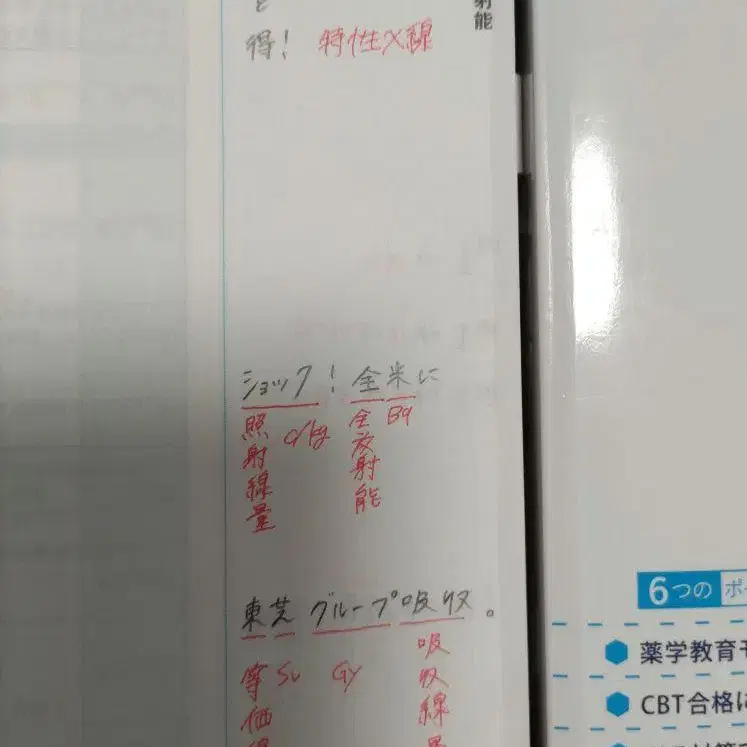 と
得! 特性X線
射能
ショック! 全米に
照射線量 C/kg 全放射能 Bq
東芝グループ吸収。
等価線 Sv Gy 吸収線量
6つの ポ
薬学教育モ
CBT合格に